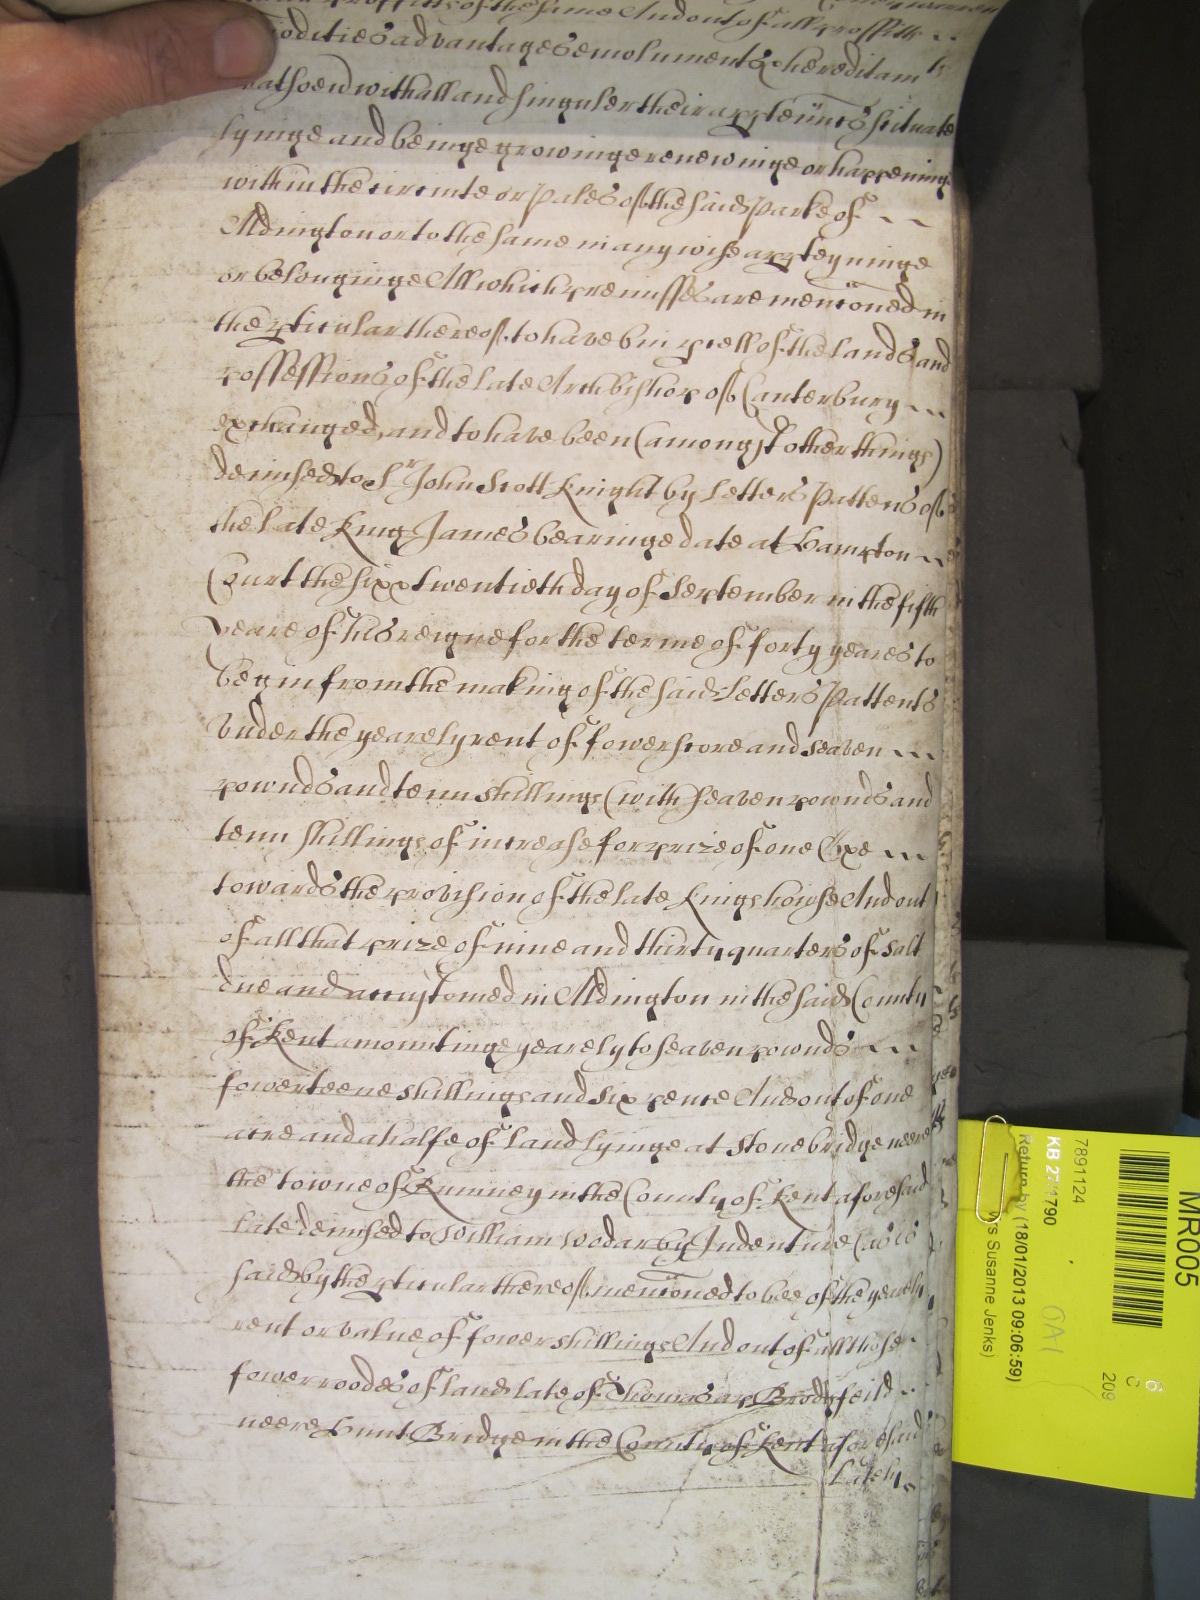 proffitts of the same And out of all proffitts
odities advantages emoluments & hereditam.ts
whatsoev.r with all and singuler their apptenncs scituate
lyinge and beinge growinge renewinge or happeninge
within the circuite or Pales of the said Parke of
Aldington or to the same in any wise appteyninge
or belonginge All which premisses are menconed in
the pticular thereof to have bin pcell of the lands and
possessions of the late Archbishop of Canterbury
exchanged, and to have been (amongst other things)
demised to S.r John Scott Knight by Letters Pattens of
the late King James bearinge date at Hampton
Court the six & twentieth day of September in the fifth
yeare of his reigne for the terme of forty yeares to
begin from the making of the said Letters Pattents
Vnder the yearely rent of fower score and seaven
pownds and tenn shillings (with seaven pownds and
tenn shillings of increase for prize of one Oxe
towards the provision of the late Kings howse And out
of all that prize of nine and thirty quarters of salt
due and accustomed in Aldington in the said County
of Kent amountinge yearely to seaven pownds
fowerteene shillings and six pence And out of one
acre and a halfe of land lyinge at Stonebridge neere
the towne of Rumney in the County of Kent aforesaid
late demised to William Wodar by Indenture (as is
said) by the pticular thereof menconed to bee of the yearely
rent or value of fower shillings And out of all those
fower roodes of land late of Thomas ap Brodnfeild
neere Hunt Bridge in the County of Kent aforesaid
Lately
MR005
7891124
KB 27/1790
Return by (18/01/2013 09:06:59)
Susanne Jenks)
OA1
6
C
209